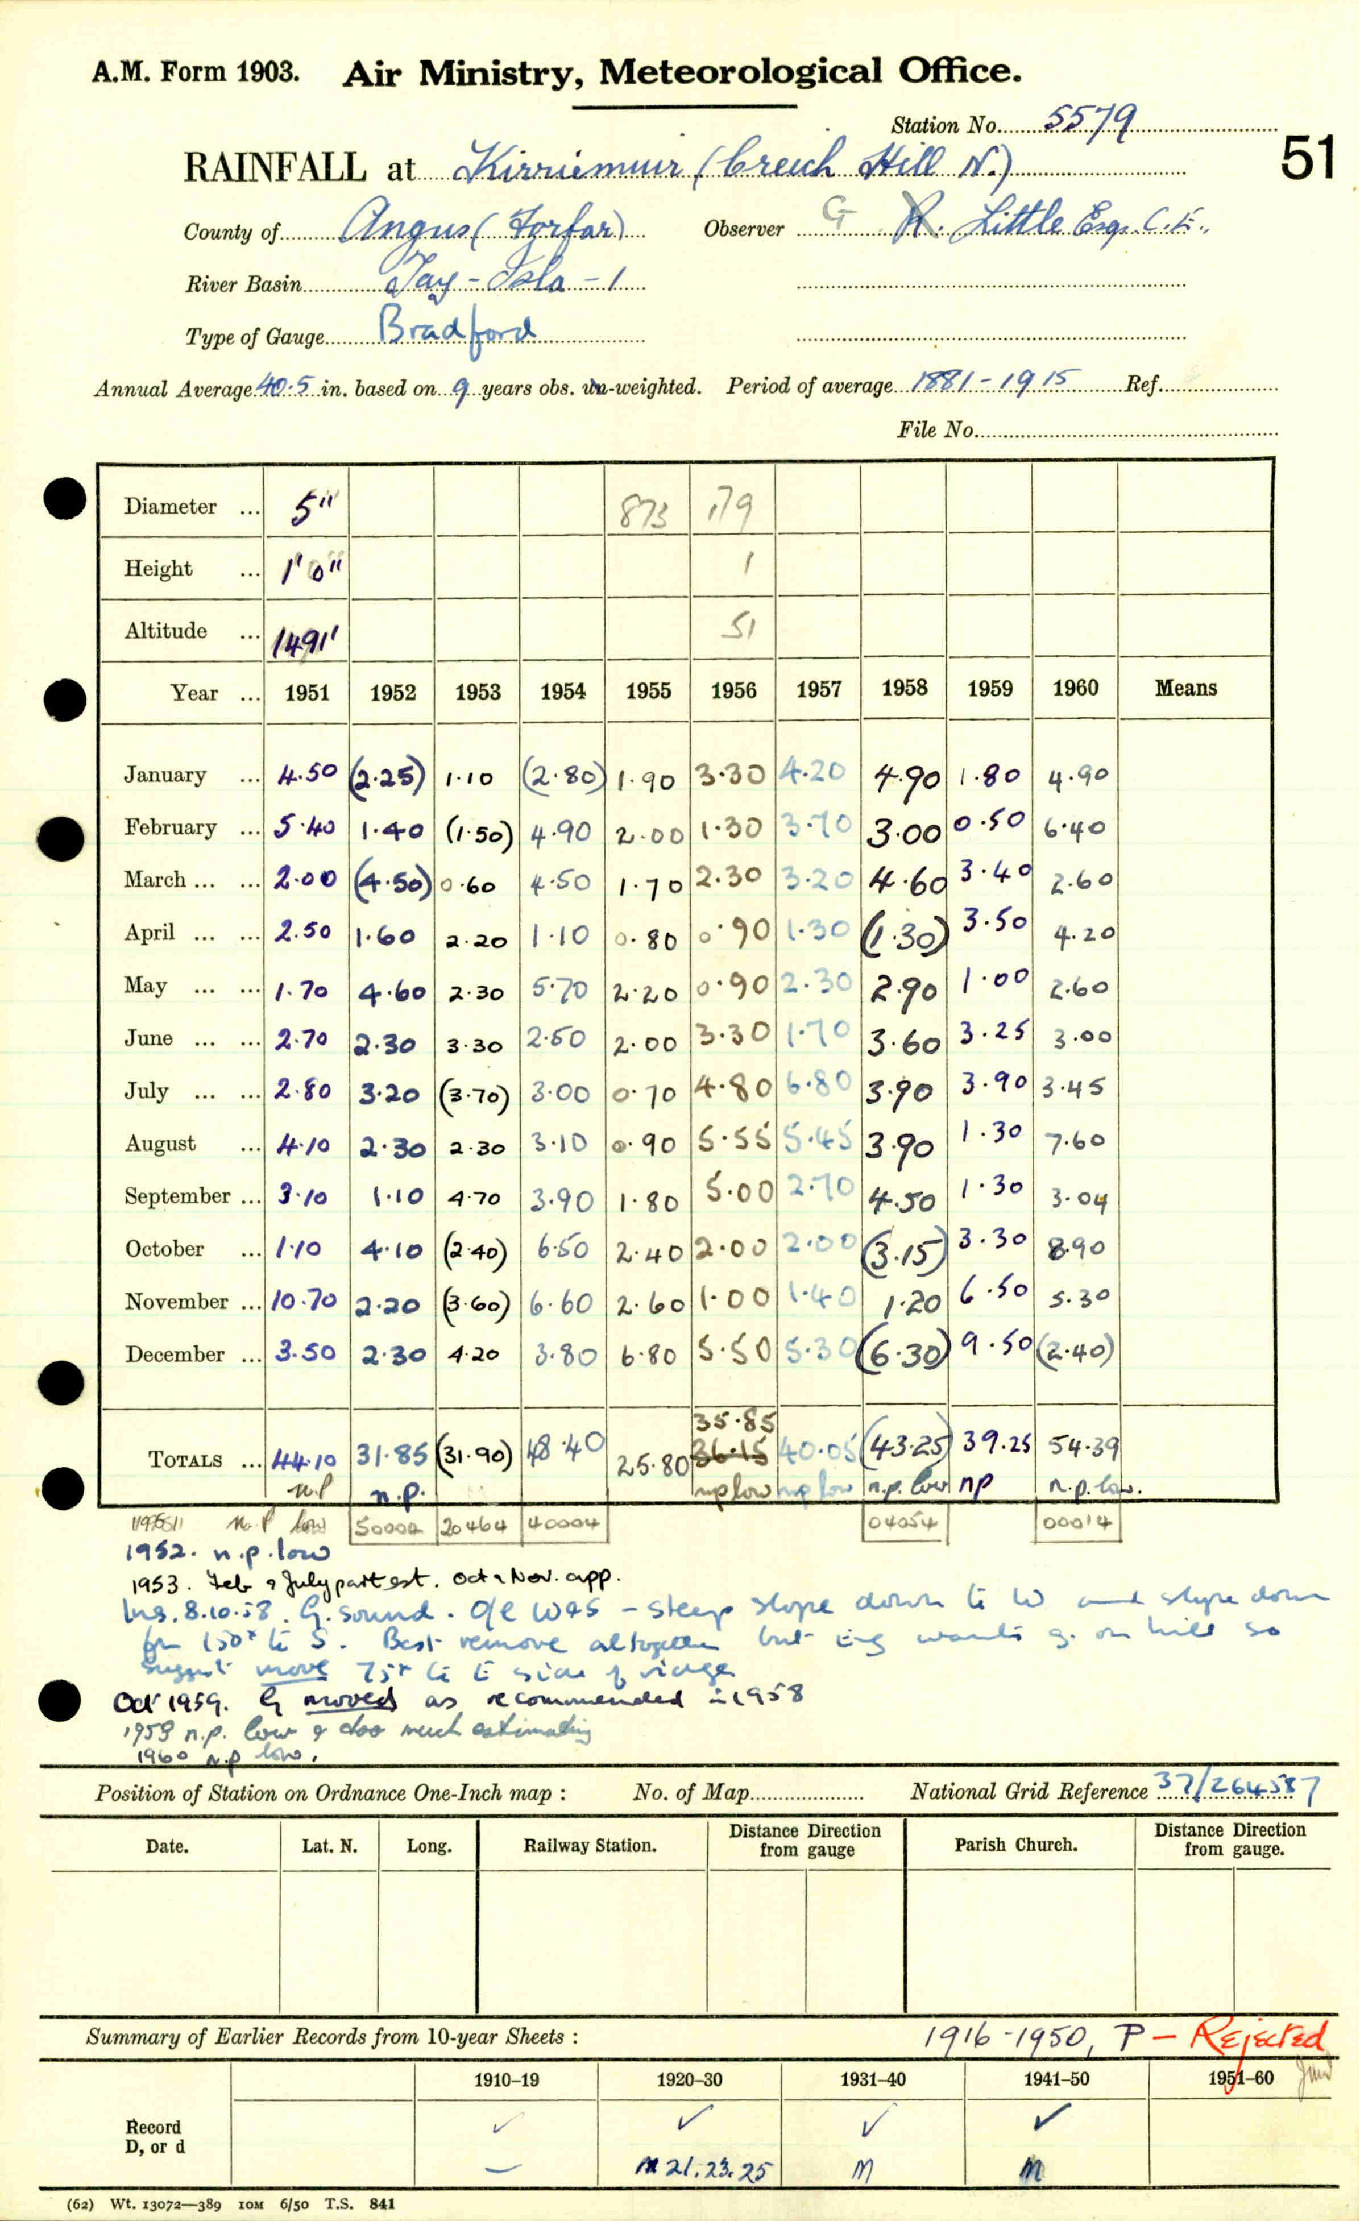 A.M. Form 1903. Air Ministry, Meteorological Office.
Station No. 5579
51
RAINFALL at Kirriemuir (Creich Hill N.)
County of Angus (Forfar) Observer G R. Little Esq. C.E.,
River Basin Tay - Isla - 1
Type of Gauge Bradford
Annual Average 40.5 in. based on 9 years obs. un-weighted. Period of average 1881-1915 Ref.
File No.
Diameter ... 5" 873 179
Height ... 1' 0" 1
Altitude ... 1491' 51
Year ... 1951 1952 1953 1954 1955 1956 1957 1958 1959 1960 Means
January ... 4.50 (2.25) 1.10 (2.80) 1.90 3.30 4.20 4.90 1.80 4.90
February ... 5.40 1.40 (1.50) 4.90 2.00 1.30 3.70 3.00 0.50 6.40
March ... ... 2.00 (4.50) 0.60 4.50 1.70 2.30 3.20 4.60 3.40 2.60
April ... ... 2.50 1.60 2.20 1.10 0.80 0.90 1.30 (1.30) 3.50 4.20
May ... ... 1.70 4.60 2.30 5.70 2.20 0.90 2.30 2.90 1.00 2.60
June ... ... 2.70 2.30 3.30 2.50 2.00 3.30 1.70 3.60 3.25 3.00
July ... ... 2.80 3.20 (3.70) 3.00 0.70 4.80 6.80 3.90 3.90 3.45
August ... 4.10 2.30 2.30 3.10 0.90 5.55 5.45 3.90 1.30 7.60
September ... 3.10 1.10 4.70 3.90 1.80 5.00 2.70 4.50 1.30 3.04
October ... 1.10 4.10 (2.40) 6.50 2.40 2.00 2.00 (3.15) 3.30 8.90
November ... 10.70 2.20 (3.60) 6.60 2.60 1.00 1.40 1.20 6.50 5.30
December ... 3.50 2.30 4.20 3.80 6.80 5.50 5.30 (6.30) 9.50 (2.40)
35.85
TOTALS ... 44.10 31.85 (31.90) 48.40 25.80 36.15 40.05 (43.25) 39.25 54.39
n.p n.p. n.p low n.p low n.p. low np n.p. low.
n.p low 50004 20464 40004 04054 00014
1952. n.p. low
1953. Feb & July part est. Oct & Nov. app.
Ins. 8.10.58. G. sound. O/E W&S - steep slope down to W and slope down
for 150x to S. Best remove altogether but Eng wants g. on hill so
suggest move 75x to E side of ridge
Oct 1959. G moved as recommended in 1958
1959 n.p. low & too much estimating
1960 n.p low.
Position of Station on Ordnance One-Inch map : No. of Map National Grid Reference 37/264587
Date. Lat. N. Long. Railway Station. Distance from gauge Direction Parish Church. Distance from gauge. Direction
Summary of Earlier Records from 10-year Sheets : 1916-1950, P - Rejected
1910–19 1920–30 1931–40 1941–50 1951–60
Record ✓ ✓ ✓ ✓
D, or d – M 21.23.25 M M
(62) Wt. 13072—389 10M 6/50 T.S. 841